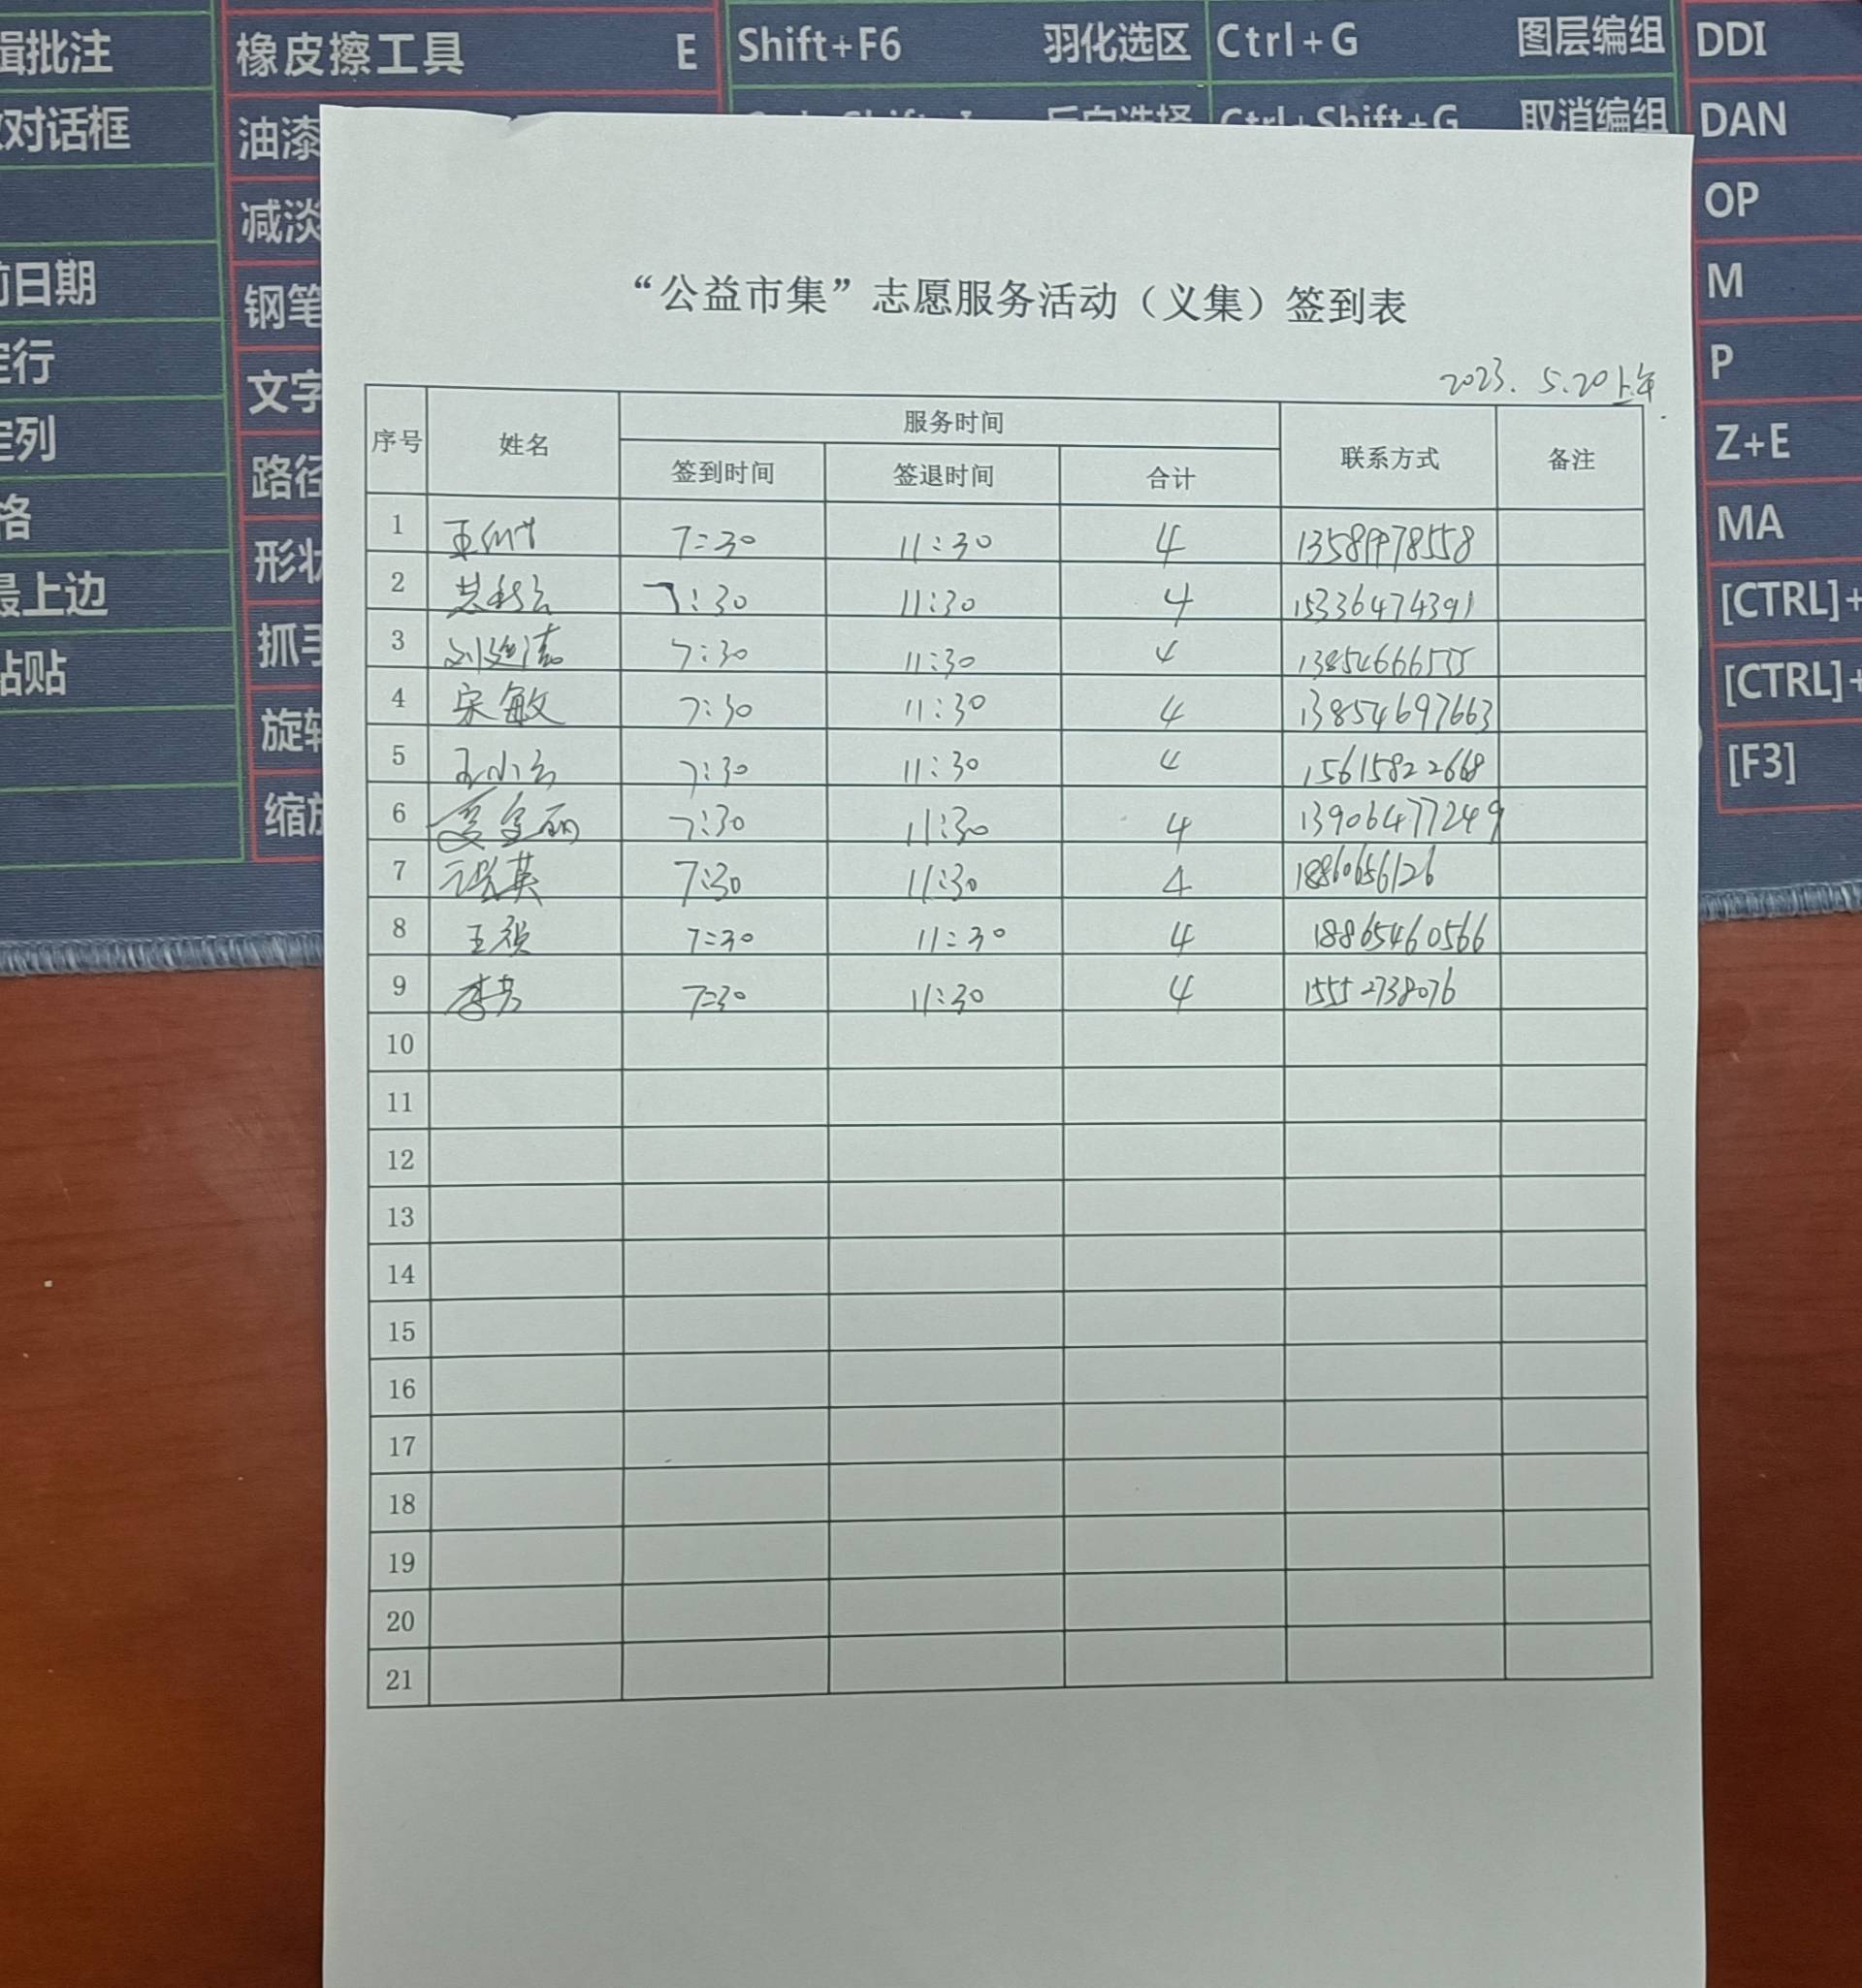 辑批注
对话框
前日期
定行
定列
格
最上边
粘贴
橡皮擦工具 E
油漆
减淡
钢笔
文字
路径
形状
抓手
旋转
缩放
Shift+F6 羽化选区
反向选择
Ctrl+G 图层编组
Ctrl+Shift+G 取消编组
DDI
DAN
OP
M
P
Z+E
MA
[CTRL]+
[CTRL]+
[F3]
“公益市集”志愿服务活动（义集）签到表
2023. 5.20上午
序号 姓名 服务时间 联系方式 备注
签到时间 签退时间 合计
1 7:30 11:30 4 13589978558
2 7:30 11:30 4 15336474391
3 7:30 11:30 4 13854666555
4 宋敏 7:30 11:30 4 13854697663
5 王小云 7:30 11:30 4 15615822668
6 7:30 11:30 4 13906477249
7 7:30 11:30 4 18860656126
8 7:30 11:30 4 18865460566
9 李芳 7:30 11:30 4 15552738076
10
11
12
13
14
15
16
17
18
19
20
21